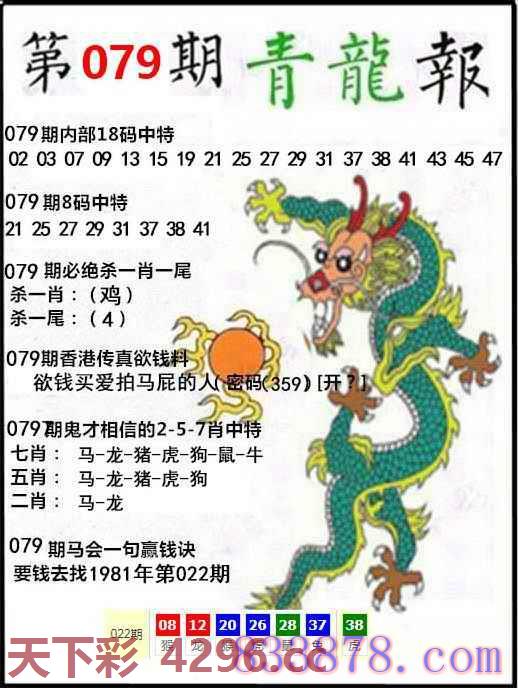 第079期青龍報
079期内部18码中特
02 03 07 09 13 15 19 21 25 27 29 31 37 38 41 43 45 47
079期8码中特
21 25 27 29 31 37 38 41
079 期必绝杀一肖一尾
杀一肖：（鸡）
杀一尾：（4）
079期香港传真欲钱料
欲钱买爱拍马屁的人(密码(359) [开？]
079期鬼才相信的2-5-7肖中特
七肖： 马-龙-猪-虎-狗-鼠-牛
五肖： 马-龙-猪-虎-狗
二肖： 马-龙
079 期马会一句赢钱诀
要钱去找1981年第022期
022期 08 12 20 26 28 37 38
猴 龙 猴 虎 鼠 兔 虎
天下彩 4296.cc
838878.com